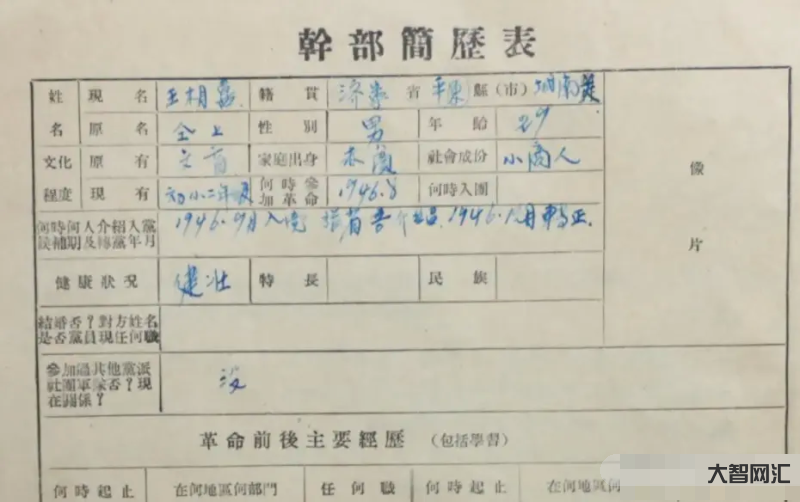 幹部簡歷表
姓 現名 王相 籍貫 濟南省 平東縣(市) 湖南
名 原名 仝上 性別 男 年齡 29
文化 原有 文盲 家庭出身 赤貧 社會成份 小商人
程度 現有 初小二年 何時參加革命 1946.8 何時入團
何時何人介紹入黨候補期及轉黨年月 1946.9月入 1946.12月 正.
健康狀況 健壯 特長 民族
結婚否?對方姓名是否黨員現任何職
參加過其他黨派社團軍隊否?現在關係? 沒
像片
革命前後主要經歷(包括學習)
何時起止 在何地區何部門 任何職 何時起止 在何地區何
大智网汇